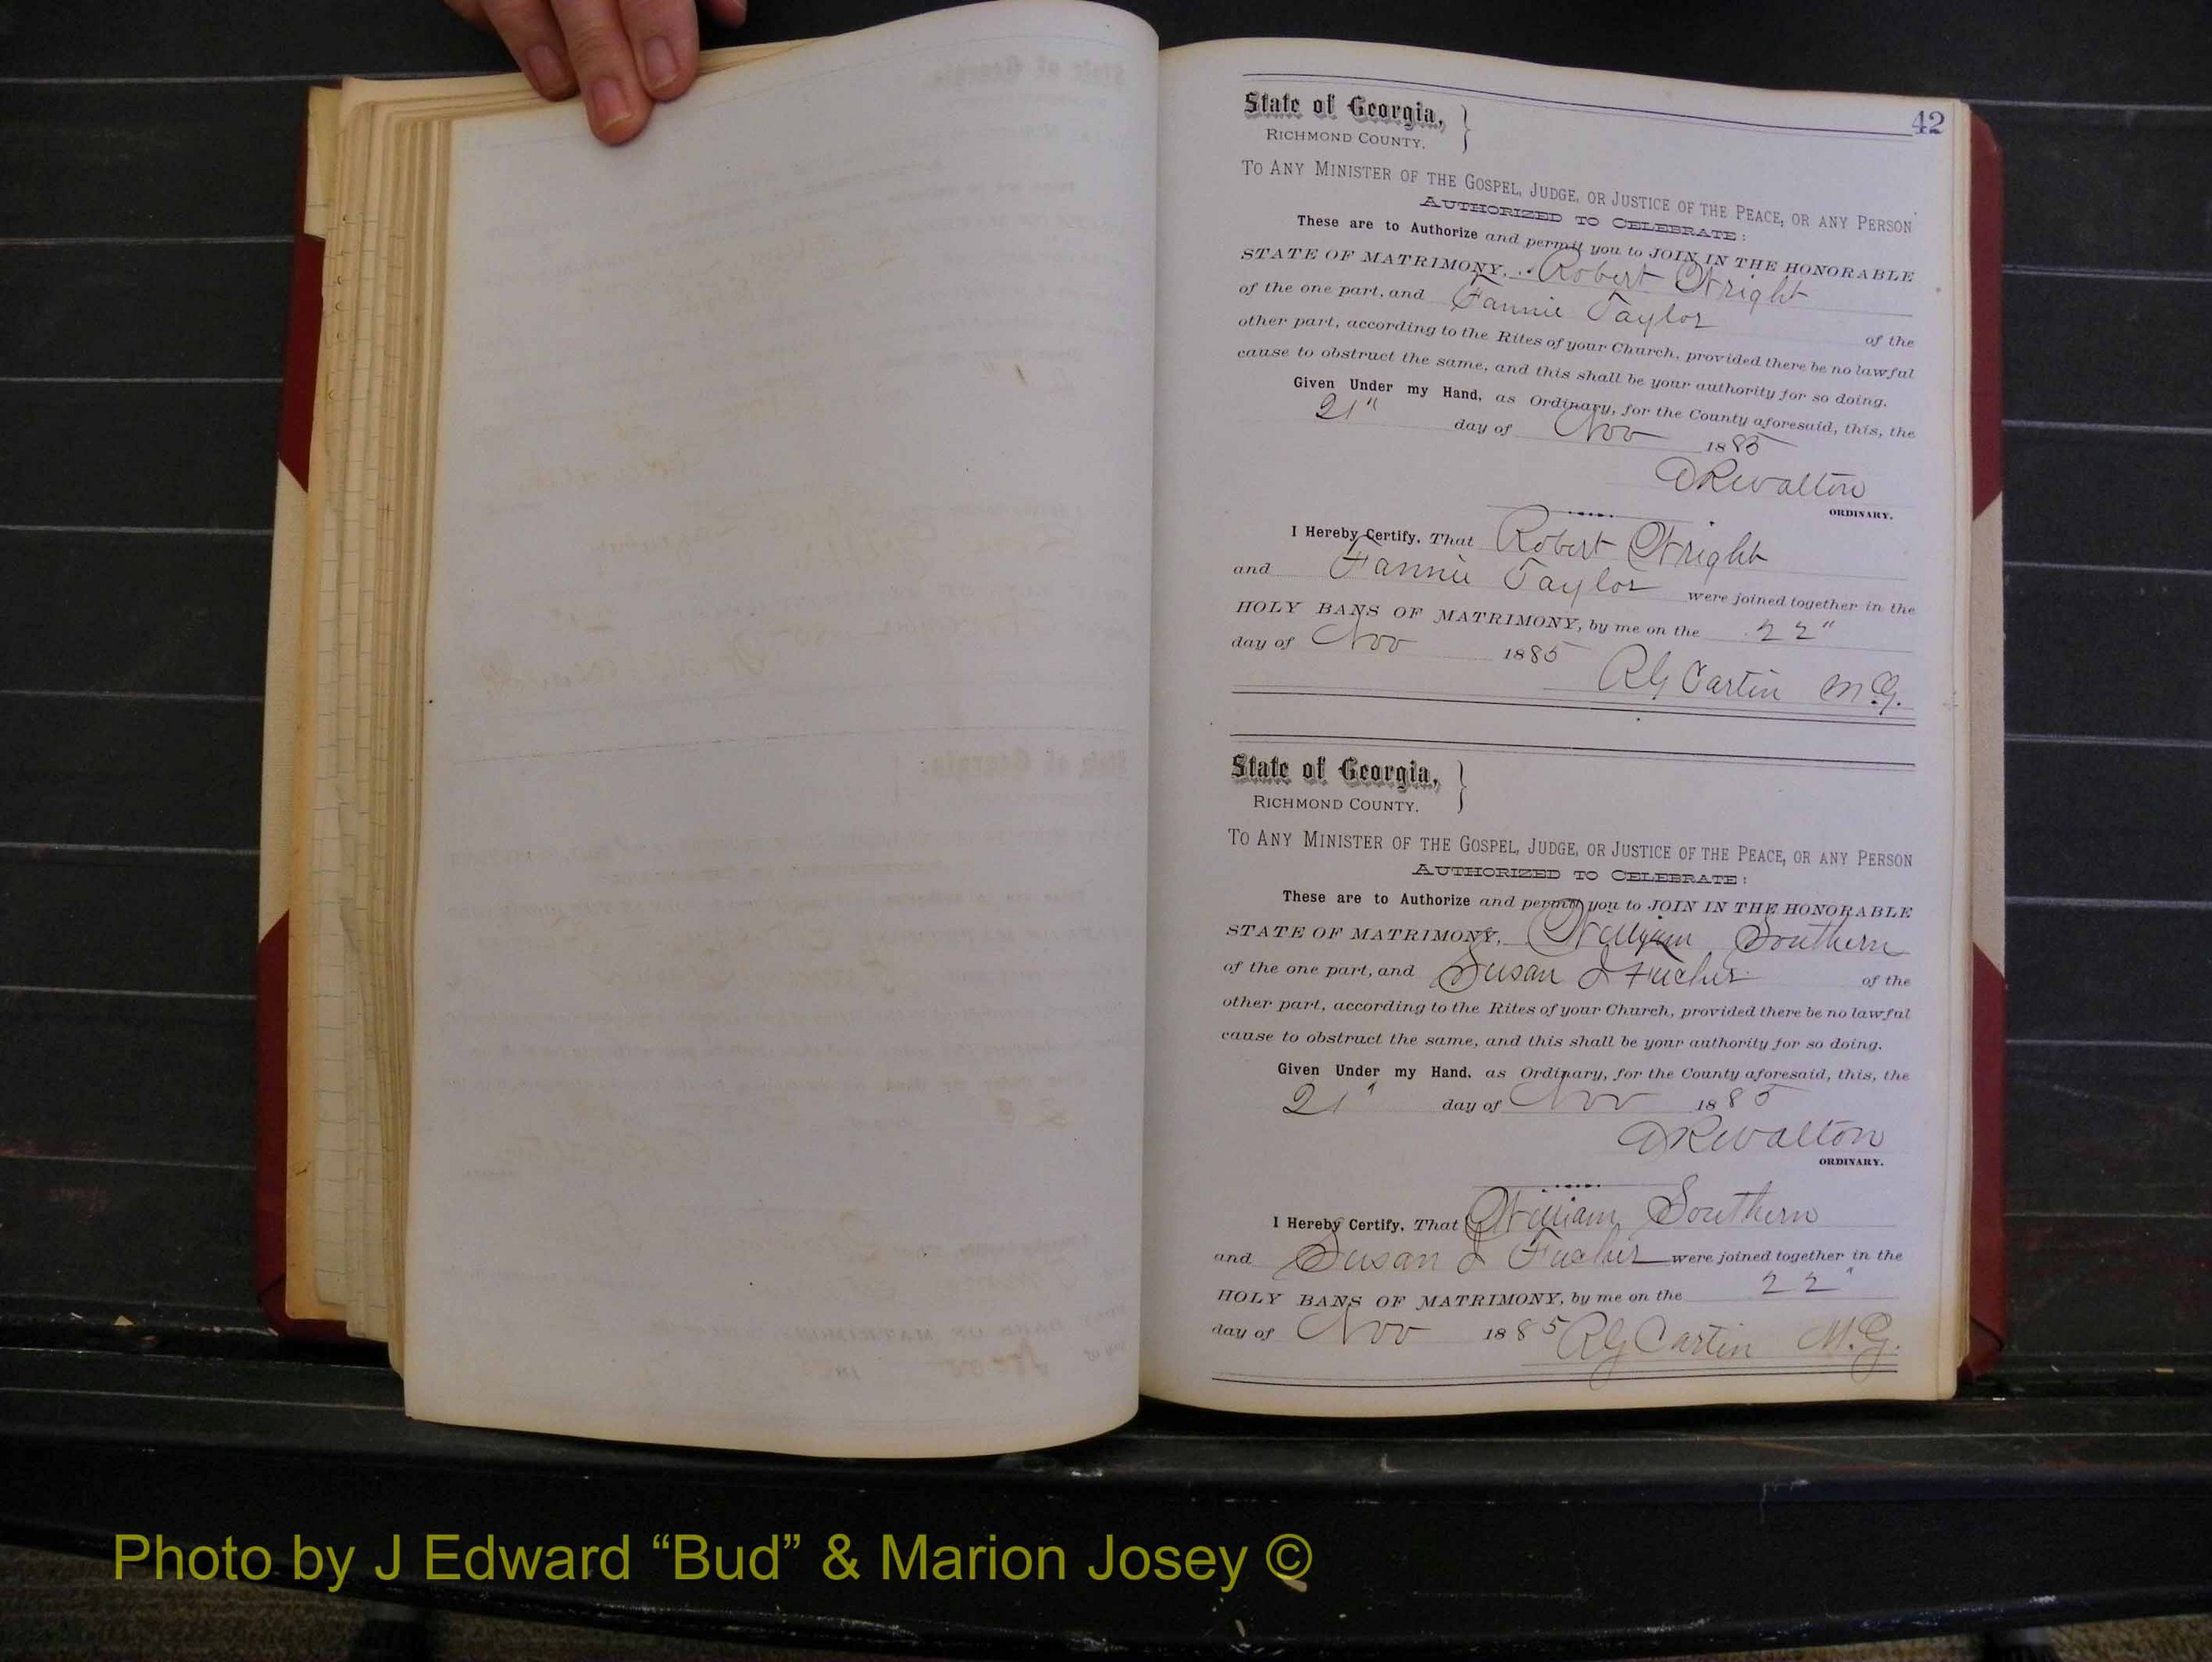 42
State of Georgia,
RICHMOND COUNTY.
TO ANY MINISTER OF THE GOSPEL, JUDGE, OR JUSTICE OF THE PEACE, OR ANY PERSON
AUTHORIZED TO CELEBRATE:
These are to Authorize and permit you to JOIN IN THE HONORABLE
STATE OF MATRIMONY, Robert Wright
of the one part, and Fannie Taylor of the
other part, according to the Rites of your Church, provided there be no lawful
cause to obstruct the same, and this shall be your authority for so doing.
Given Under my Hand, as Ordinary, for the County aforesaid, this, the
21" day of Nov 1885
DRWalton
ORDINARY.
I Hereby Certify, That Robert Wright
and Fannie Taylor were joined together in the
HOLY BANS OF MATRIMONY, by me on the 22"
day of Nov 1885 M.G.
State of Georgia,
RICHMOND COUNTY.
TO ANY MINISTER OF THE GOSPEL, JUDGE, OR JUSTICE OF THE PEACE, OR ANY PERSON
AUTHORIZED TO CELEBRATE:
These are to Authorize and permit you to JOIN IN THE HONORABLE
STATE OF MATRIMONY, William Southern
of the one part, and Susan of the
other part, according to the Rites of your Church, provided there be no lawful
cause to obstruct the same, and this shall be your authority for so doing.
Given Under my Hand, as Ordinary, for the County aforesaid, this, the
21" day of Nov 1885
DRWalton
ORDINARY.
I Hereby Certify, That William Southern
and Susan were joined together in the
HOLY BANS OF MATRIMONY, by me on the 22"
day of Nov 1885 M.G.
Photo by J Edward “Bud” & Marion Josey ©